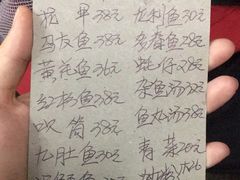 花甲38元 龙利鱼30元
马友鱼38元 多春鱼28元
黄花鱼36元 蚝仔28元
红杉鱼38元 杂鱼汤38元
吹筒38元 鱼丸汤38元
九肚鱼30元 青菜20元